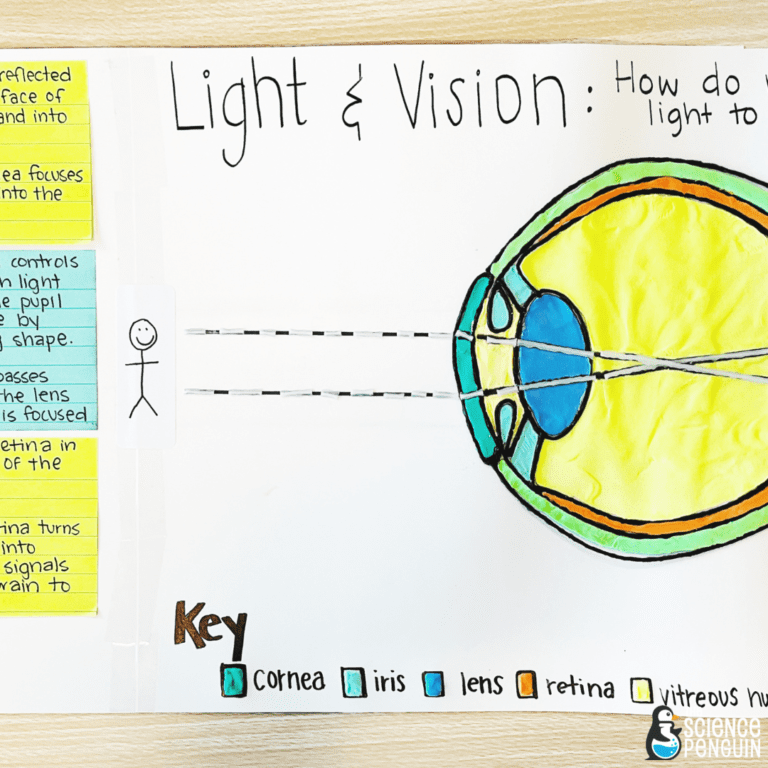 reflected
face of
and into
ea focuses
nto the
controls
light
pupil
by
shape.
passes
the lens
is focused
retina in
of the
ina turns
into
signals
brain to
Light & Vision: How do
light to
Key
cornea iris lens retina vitreous hu
SCIENCE
PENGUIN